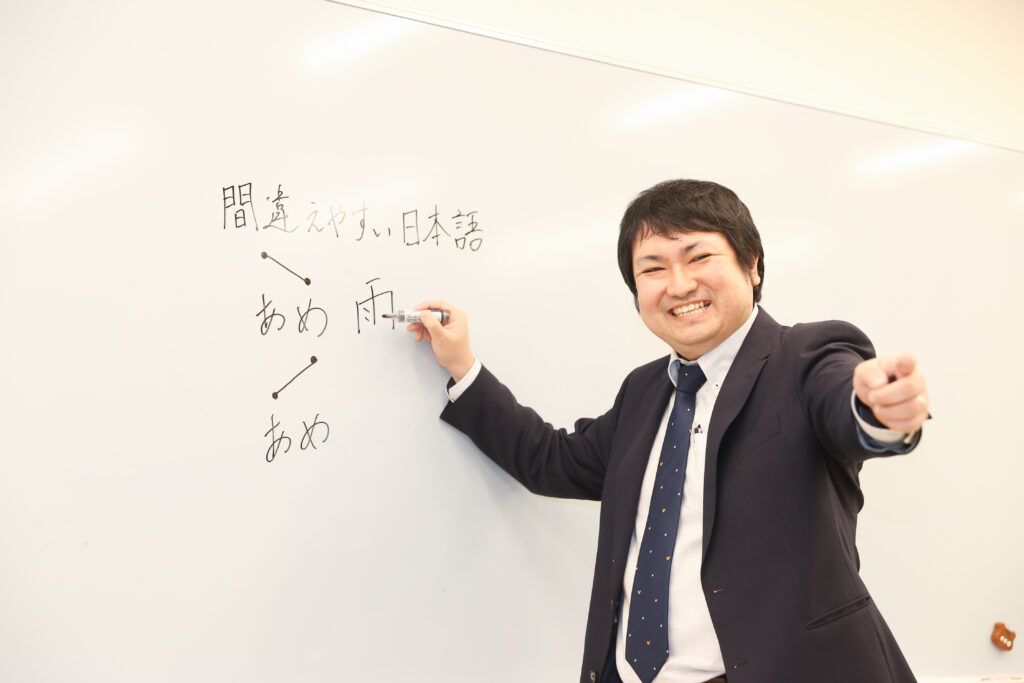 間違えやすい日本語
あめ 雨
あめ